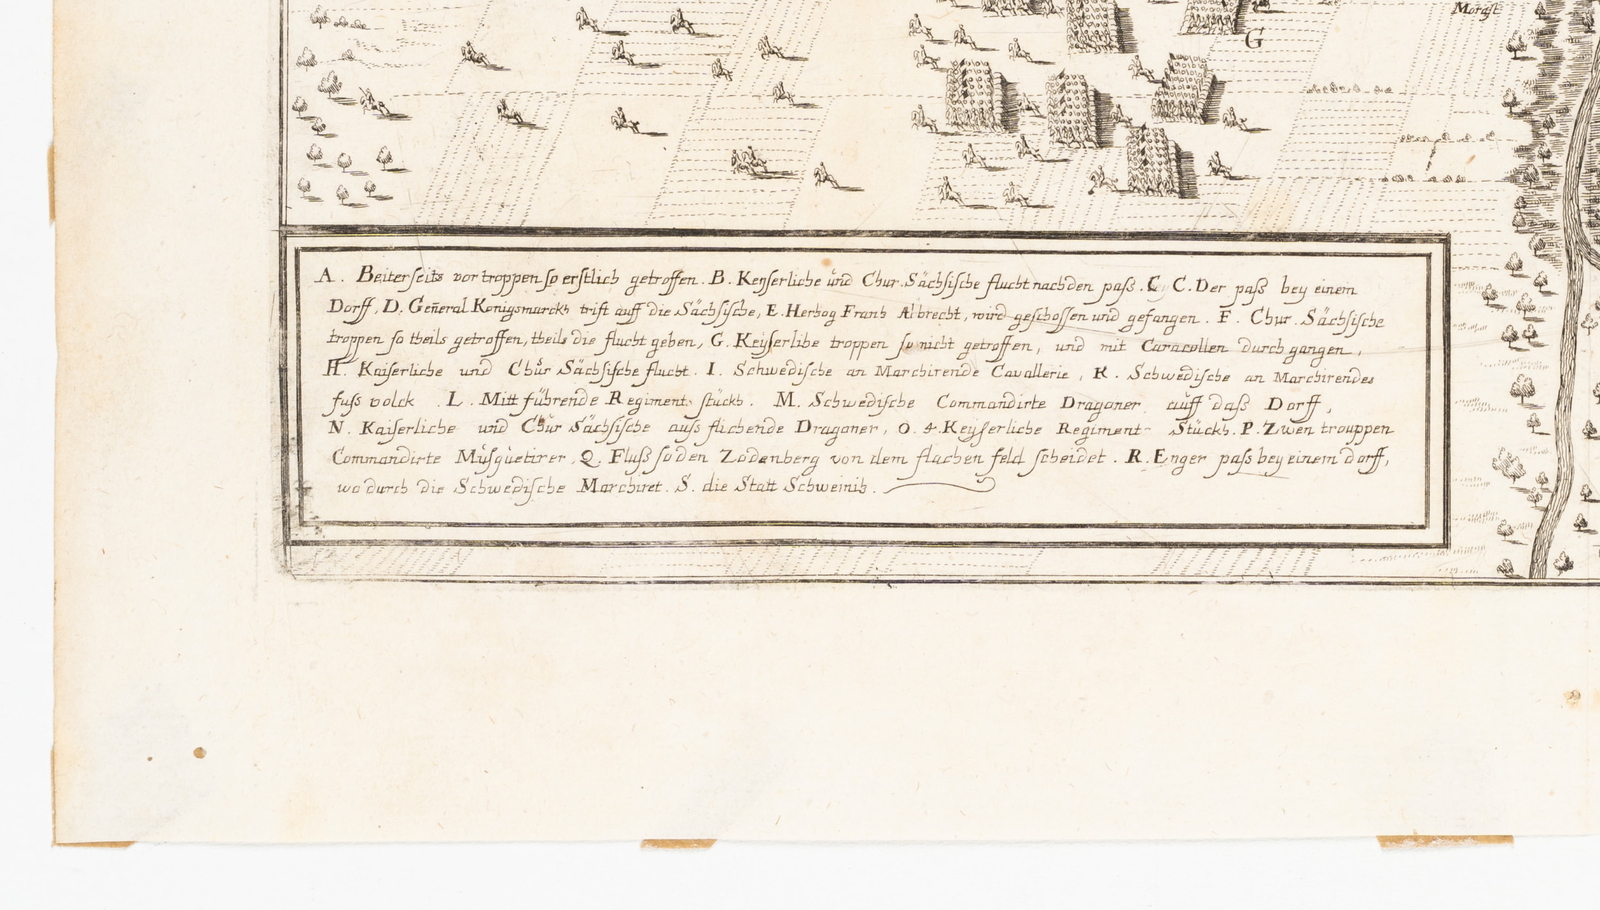 Morast
G
A. Beiterseits vortroppen so erstlich getroffen. B. Keyserliche und Chur. Sächsische flucht nach den paß. C. C. Der paß bey einem
Dorff, D. General Konigsmarckh trift auff die Sächsische, E. Hertzog Frantz Albrecht, wird geschossen und gefangen. F. Chur. Sächsische
troppen so theils getroffen, theils die flucht geben, G. Keyserlihe troppen so nicht getroffen, und mit Caracollen durch gangen,
H. Kaiserliche und Chur Sächsische flucht. I. Schwedische an Marchirende Cavallerie, K. Schwedische an Marchirendes
fuss volck . L. Mitt führende Regiment stückh. M. Schwedische Commandirte Dragoner auff daß Dorff,
N. Kaiserliche und Chur Sächsische auss flichende Dragoner, O. 4. Keyserliche Regiment Stückh. P. Zwen trouppen
Commandirte Musquetirer, Q. Fluß so den Zodenberg von dem flachen feld scheidet. R. Enger pass bey einem dorff,
wo durch die Schwedische Marchiret. S. die Statt Schweinitz.